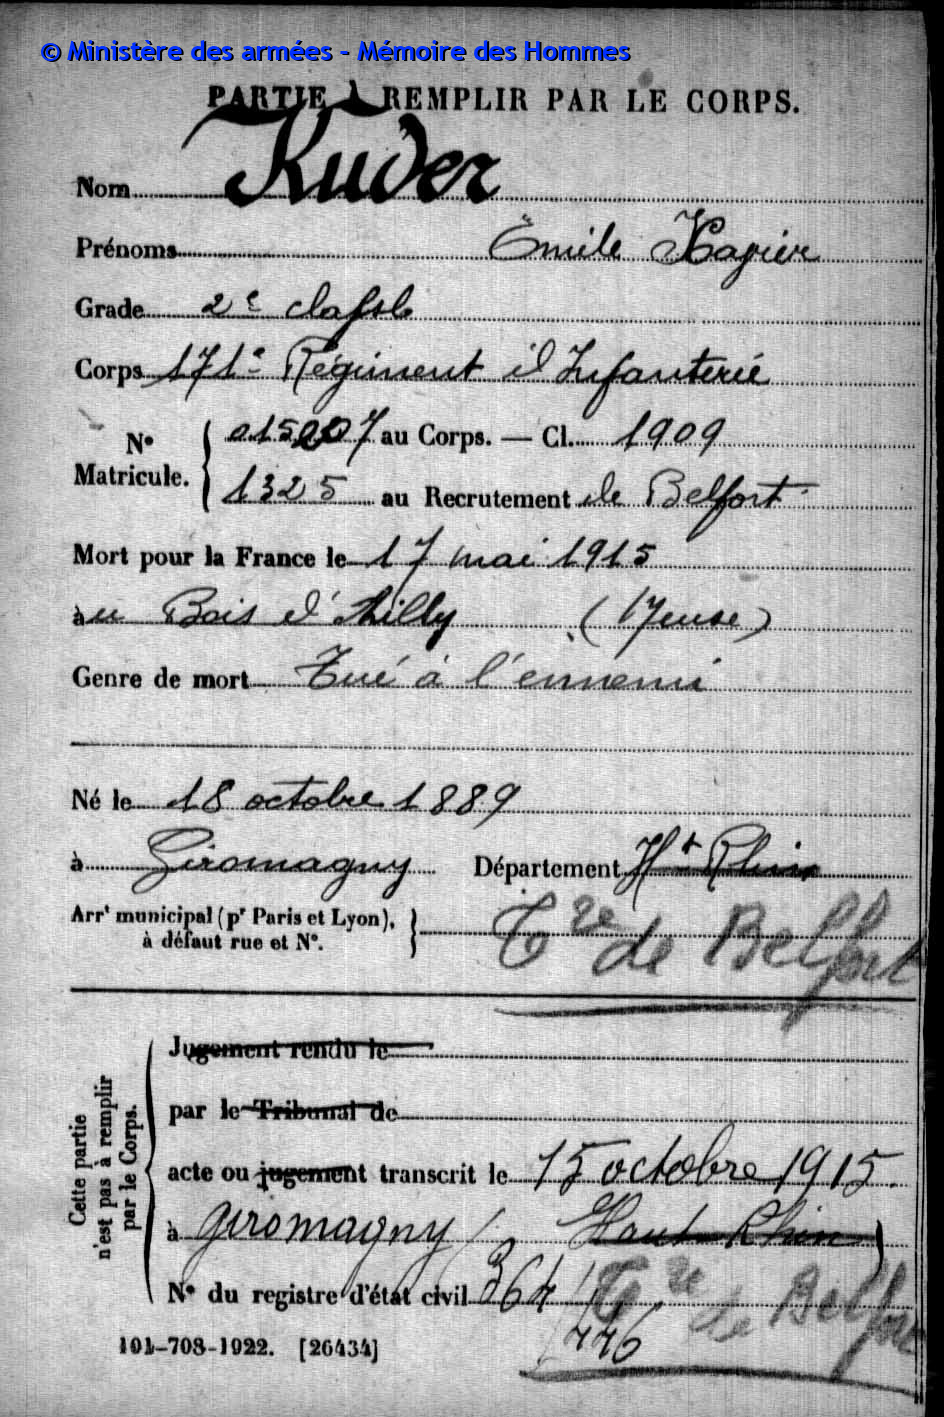 © Ministère des armées - Mémoire des Hommes
PARTIE À REMPLIR PAR LE CORPS.
Nom Kuder
Prénoms Émile Xavier
Grade 2e classe
Corps 171e Régiment d'Infanterie
N° Matricule. { 015007 au Corps. — Cl. 1909
1325 au Recrutement de Belfort
Mort pour la France le 17 mai 1915
au Bois d'Ailly (Meuse)
Genre de mort Tué à l'ennemi
Né le 18 octobre 1889
à Giromagny Département Ht Rhin
Arrt municipal (pr Paris et Lyon), à défaut rue et N°. } Tre de Belfort
Cette partie n'est pas à remplir par le Corps.
Jugement rendu le
par le Tribunal de
acte ou jugement transcrit le 15 octobre 1915.
à Giromagny (Haut-Rhin)
N° du registre d'état civil 364 Tre de Belfort
446
101-708-1922. [26434]